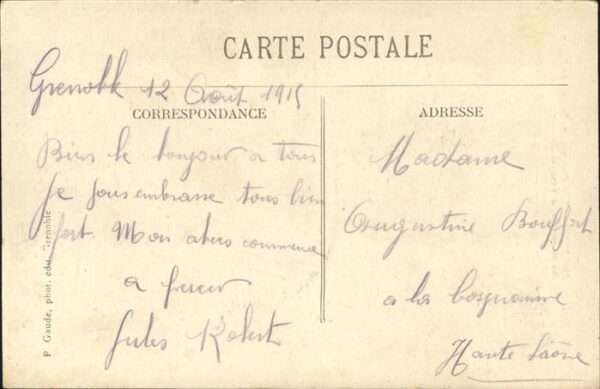 CARTE POSTALE
Grenoble 12 Août 1915
CORRESPONDANCE
Bien le bonjour a tous
Je vous embrasse tous bien
fort. Mon abcès commence
a
Jules Robert
ADRESSE
Madame
Augustine
a la
Haute Saône
P Gaude, phot. édit. Grenoble